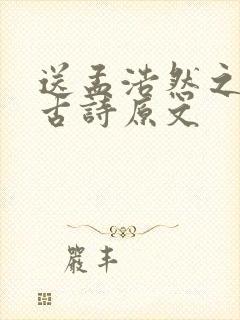 送孟浩然之
古詩原文
嚴丰